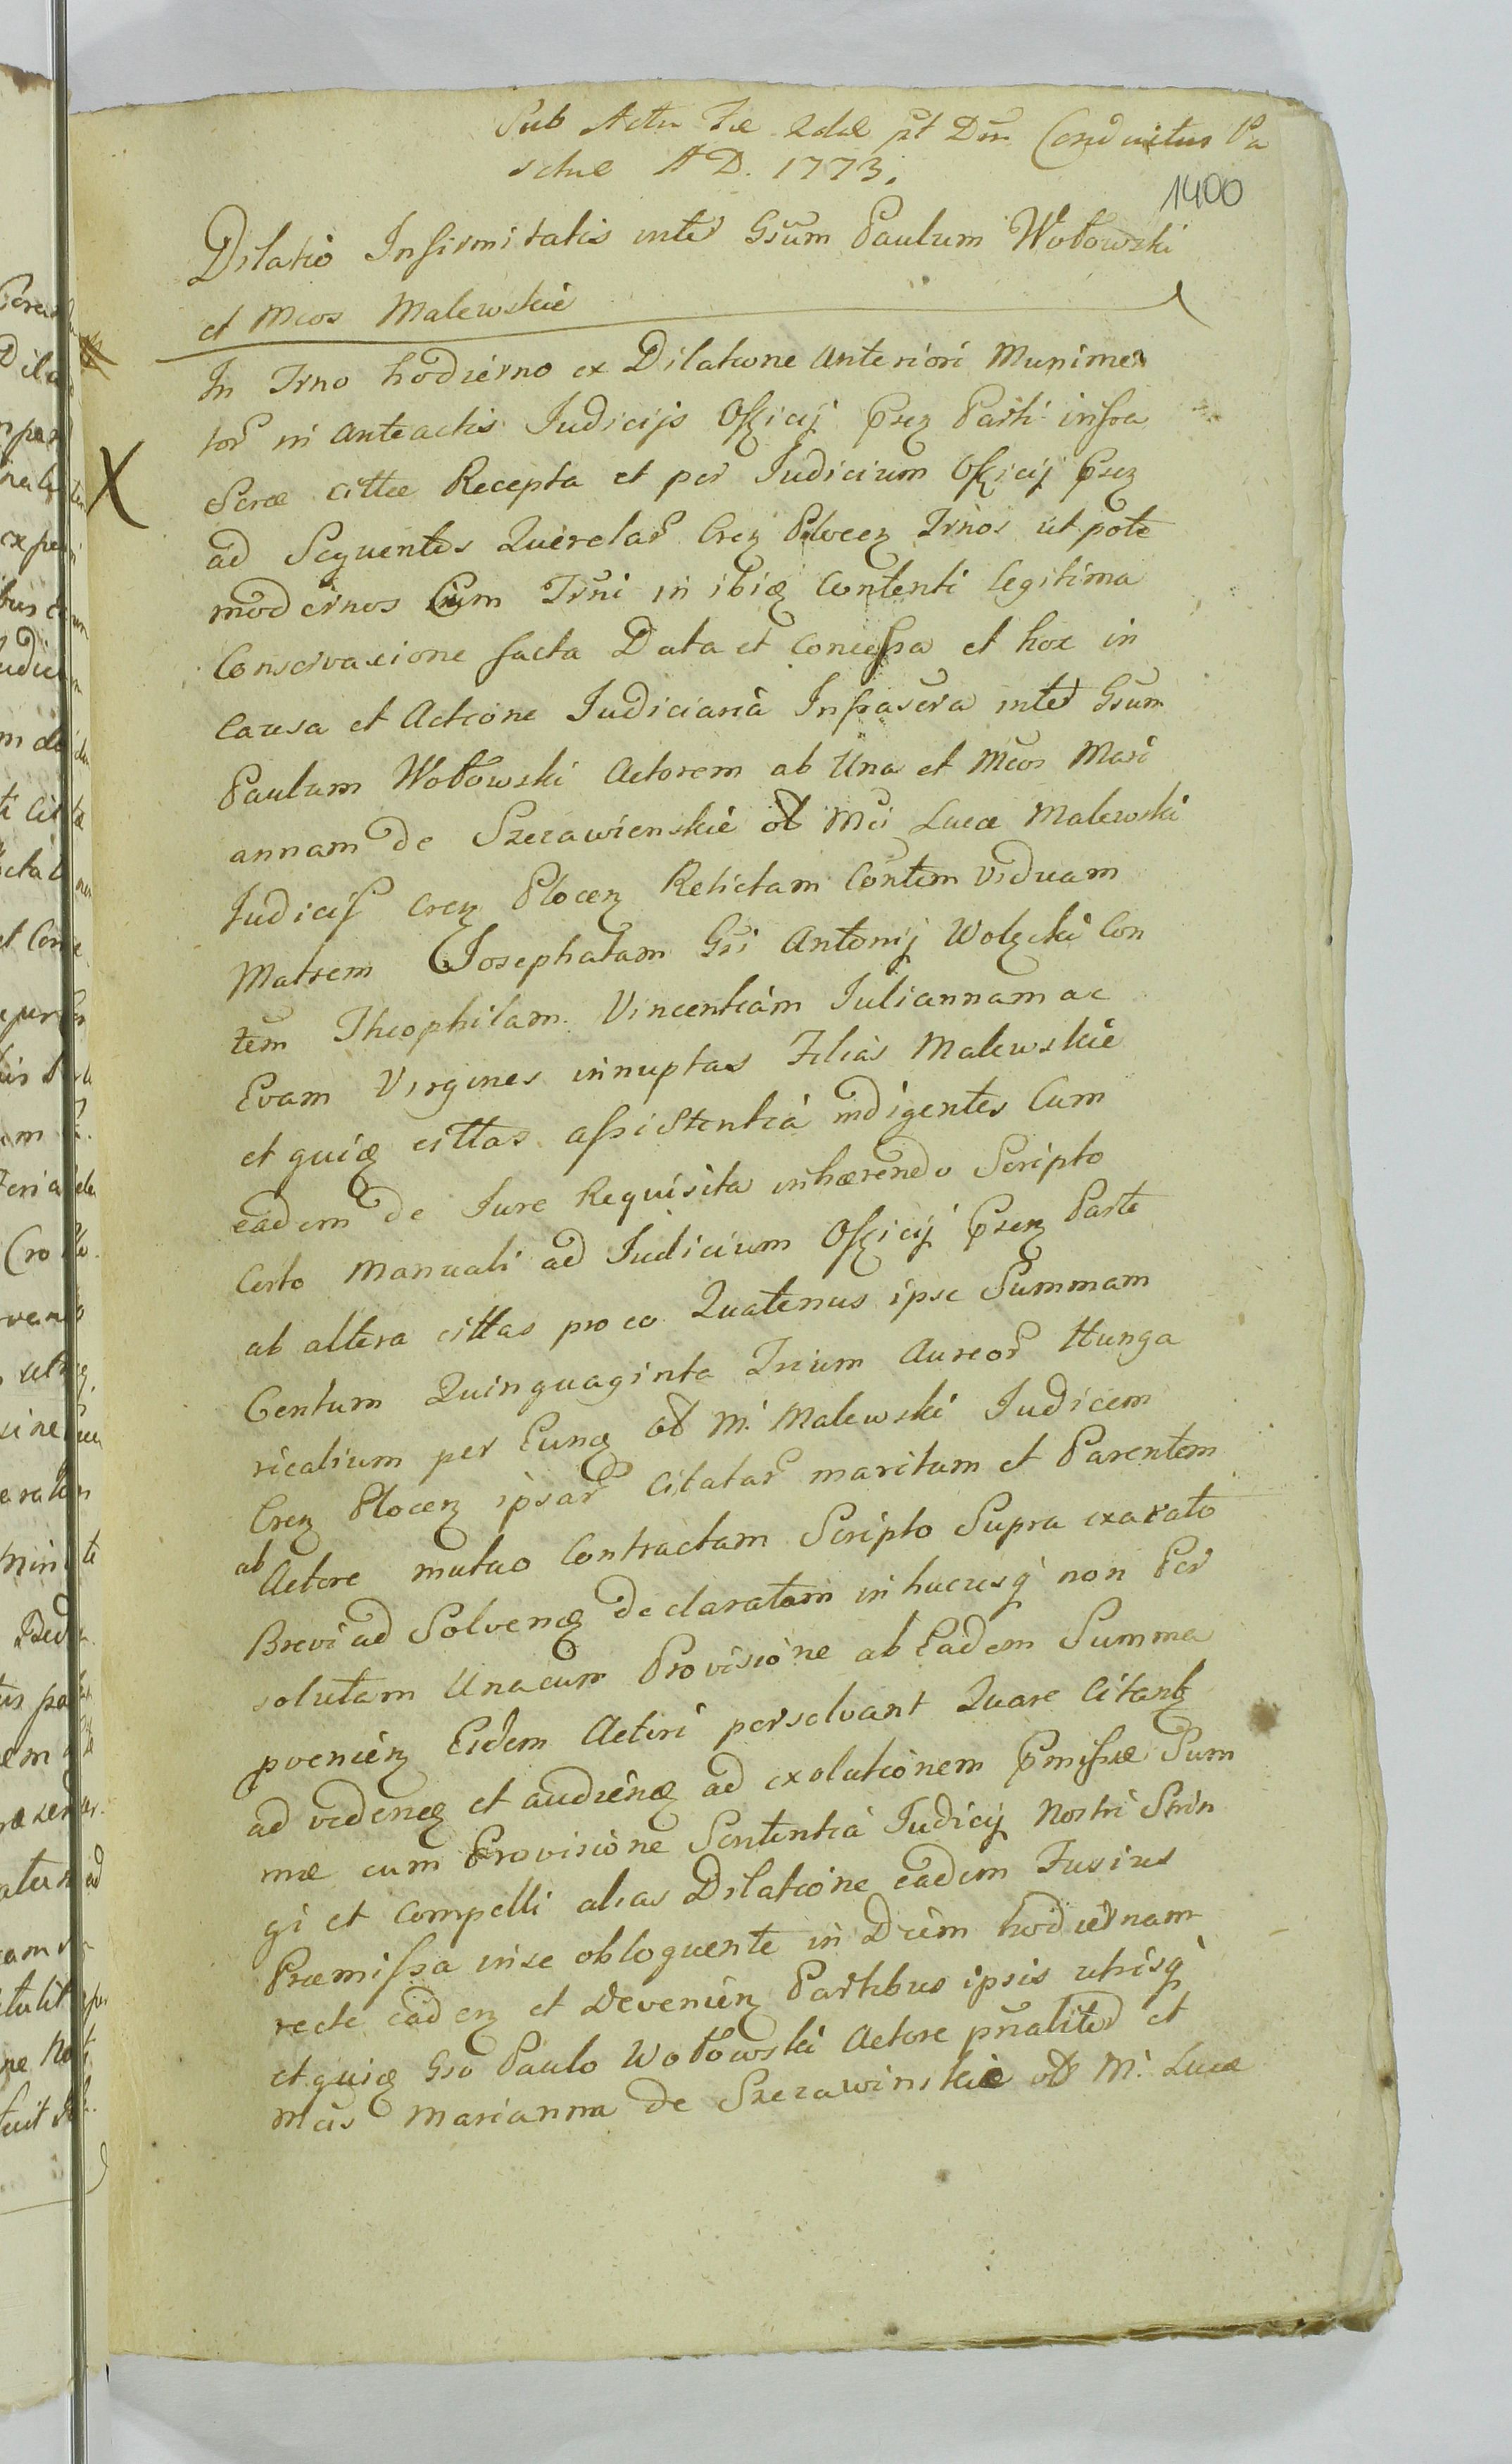 Sub Actu Fæ 2dæ pt Dom Conductus Pa
schæ AD. 1773.
1400
Dilatio Infirmitatis inter Gsum Paulum Wobowski
et Mcos Malewskie
In Trno hodierno ex Dilatione Anteriori Munimen
tor in anteactis Iudicijs Officij Prsz Parti infra
Scræ cittæ Recepta et per Iudicium Officij Prsz
ad Sequentes Querelar Crez Plocez Trnos ut pote
modernos Cum Trni in ibiq Contenti legitima
Conservacione facta Data et Concessa et hoc in
Causa et Actione Iudiciaria Infrascra inter Gsum
Paulum Wobowski Actorem ab Una et Mcos Mari
annam de Szczawienskie ol Mci Lucæ Malewski
Judicis Crez Plocez Relictam Contem Viduam
Matrem Josephatam Gsi Antonij Wolęcki Con
tem Theophilam Vincentiam Juliannam ac
Evam Virgines innuptas Filias Malewskie
et quiq cittas assistentia indigentes Cum
eadem de Iure Requisita inhærendo Scripto
Certo Manuali ad Judicium Officij Prsez Parte
ab altera cittas pro eo Quatenus ipse Summam
Centum Quinquaginta Trium Aureor Hunga
ricalium per Eunq ol M. Malewski Judicem
Crez Plocez ipsar Citatar maritum et Parentem
ab Actore mutuo Contractam Scripto Supra exarato
Brevi ad Solvenq declaratam in hucusq non Per
solutam Unacum Provisione ab Eadem Summa
pveniez Eidem Actori persolvant Quare Citantq
ad videnq et audienq ad exolutionem Pmissæ Sum
mæ cum Provisione Sententia Judicij Nostri Strin
gi et Compelli alias Dilatione eadem Fusius
Præmissa in se obloquente in Diem hodiernam
recte cadez et Deveniez Partibus ipsis utrisq
et quiq Gso Paulo Wobowski Actore pnaliter et
Mcis Marianna de Szczawinskie ol M. Lucæ